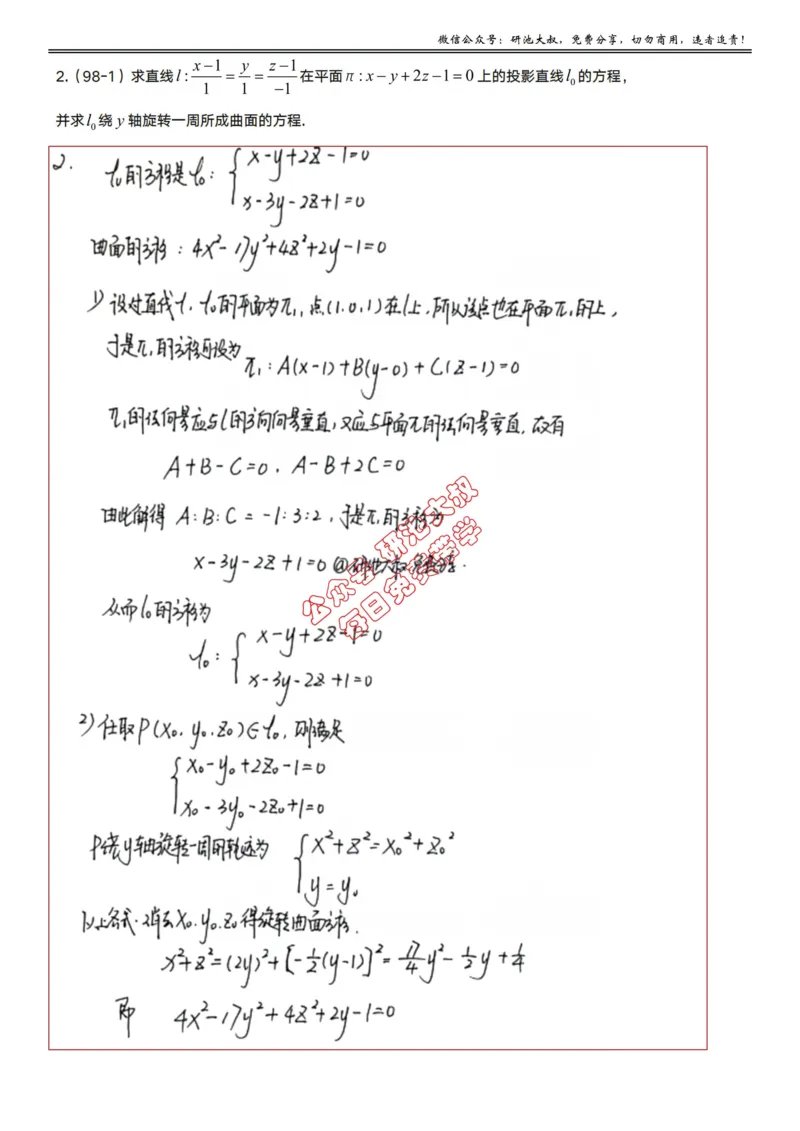 微信公众号：研池大叔，免费分享，切勿商用，违者追责！
2.（98-1）求直线 l : (x-1)/1 = y/1 = (z-1)/(-1) 在平面 π : x - y + 2z - 1 = 0 上的投影直线 l₀ 的方程，
并求 l₀ 绕 y 轴旋转一周所成曲面的方程.
2. l₀的方程是 l₀: { x-y+2z-1=0
x-3y-2z+1=0
曲面的方程: 4x²-17y²+4z²+2y-1=0
1) 设过直线 l, l₀的平面为π₁, 点(1,0,1)在l上, 所以该点也在平面π₁的上,
于是π₁的方程可设为
π₁: A(x-1)+B(y-0)+C(z-1)=0
π₁的法向量应与l的方向向量垂直, 又应与平面π的法向量垂直, 故有
A+B-C=0, A-B+2C=0
由此解得 A:B:C = -1:3:2, 于是π₁的方程为
x-3y-2z+1=0 @研池大叔 免费分享.
从而l₀的方程为
l₀: { x-y+2z-1=0
x-3y-2z+1=0
2) 任取P(x₀, y₀, z₀)∈l₀, 则满足
{ x₀-y₀+2z₀-1=0
x₀-3y₀-2z₀+1=0
P绕y轴旋转一周的轨迹为 { x²+z²=x₀²+z₀²
y=y₀
以上各式, 消去x₀, y₀, z₀得旋转曲面方程.
x²+z²=(2y)²+[-½(y-1)]²=17/4 y²-½y+¼
即 4x²-17y²+4z²+2y-1=0
公众号:研池大叔
每日免费带学